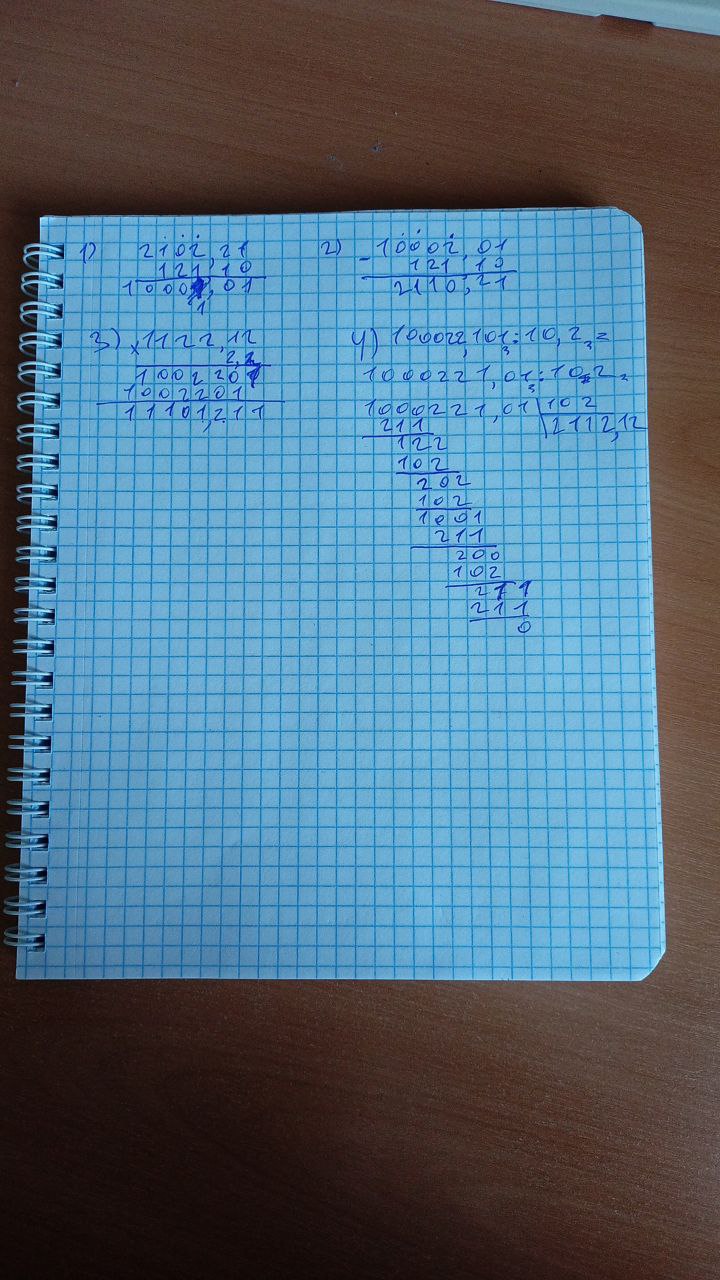 1) 2102,21
121,10
1000,01
1
2) -10002,01
121,10
2110,21
3) x1122,12
2,2
1002201
1002201
11101,211
4) 100022,101₃:10,2₃=
1000221,01₃:10₃2=
1000221,01 102
211 2112,12
122
102
202
102
1001
211
200
102
211
211
0